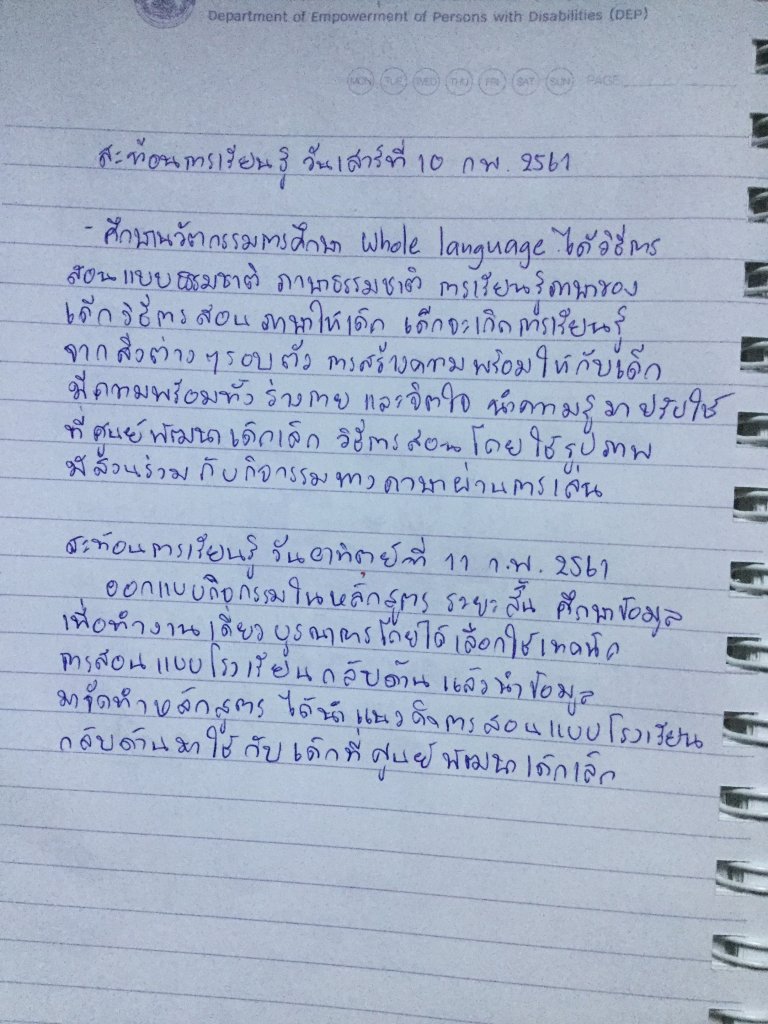 Department of Empowerment of Persons with Disabilities (DEP)
MON TUE WED THU FRI SAT SUN PAGE
สะท้อนการเรียนรู้ วันเสาร์ที่ 10 กพ. 2561
- ศึกษานวัตกรรมการศึกษา Whole language ได้วิธีการ
สอนแบบธรรมชาติ ภาษาธรรมชาติ การเรียนรู้ภาษาของ
เด็ก วิธีการสอนภาษาให้เด็ก เด็กจะเกิดการเรียนรู้
จากสิ่งต่างๆรอบตัว การสร้างความพร้อมให้กับเด็ก
มีความพร้อมทั้งร่างกาย และจิตใจ นำความรู้มาปรับใช้
ที่ศูนย์พัฒนาเด็กเล็ก วิธีการสอนโดยใช้รูปภาพ
มีส่วนร่วมกับกิจกรรมทางภาษาผ่านการเล่น
สะท้อนการเรียนรู้ วันอาทิตย์ที่ 11 ก.พ. 2561
ออกแบบกิจกรรมในหลักสูตร ระยะสั้น ศึกษาข้อมูล
เพื่อทำงานเดี่ยว บูรณาการโดยได้เลือกใช้เทคนิค
การสอนแบบโรงเรียนกลับด้าน แล้วนำข้อมูล
มาจัดทำหลักสูตร ได้นำแนวคิดการสอนแบบโรงเรียน
กลับด้านมาใช้กับเด็กที่ศูนย์พัฒนาเด็กเล็ก